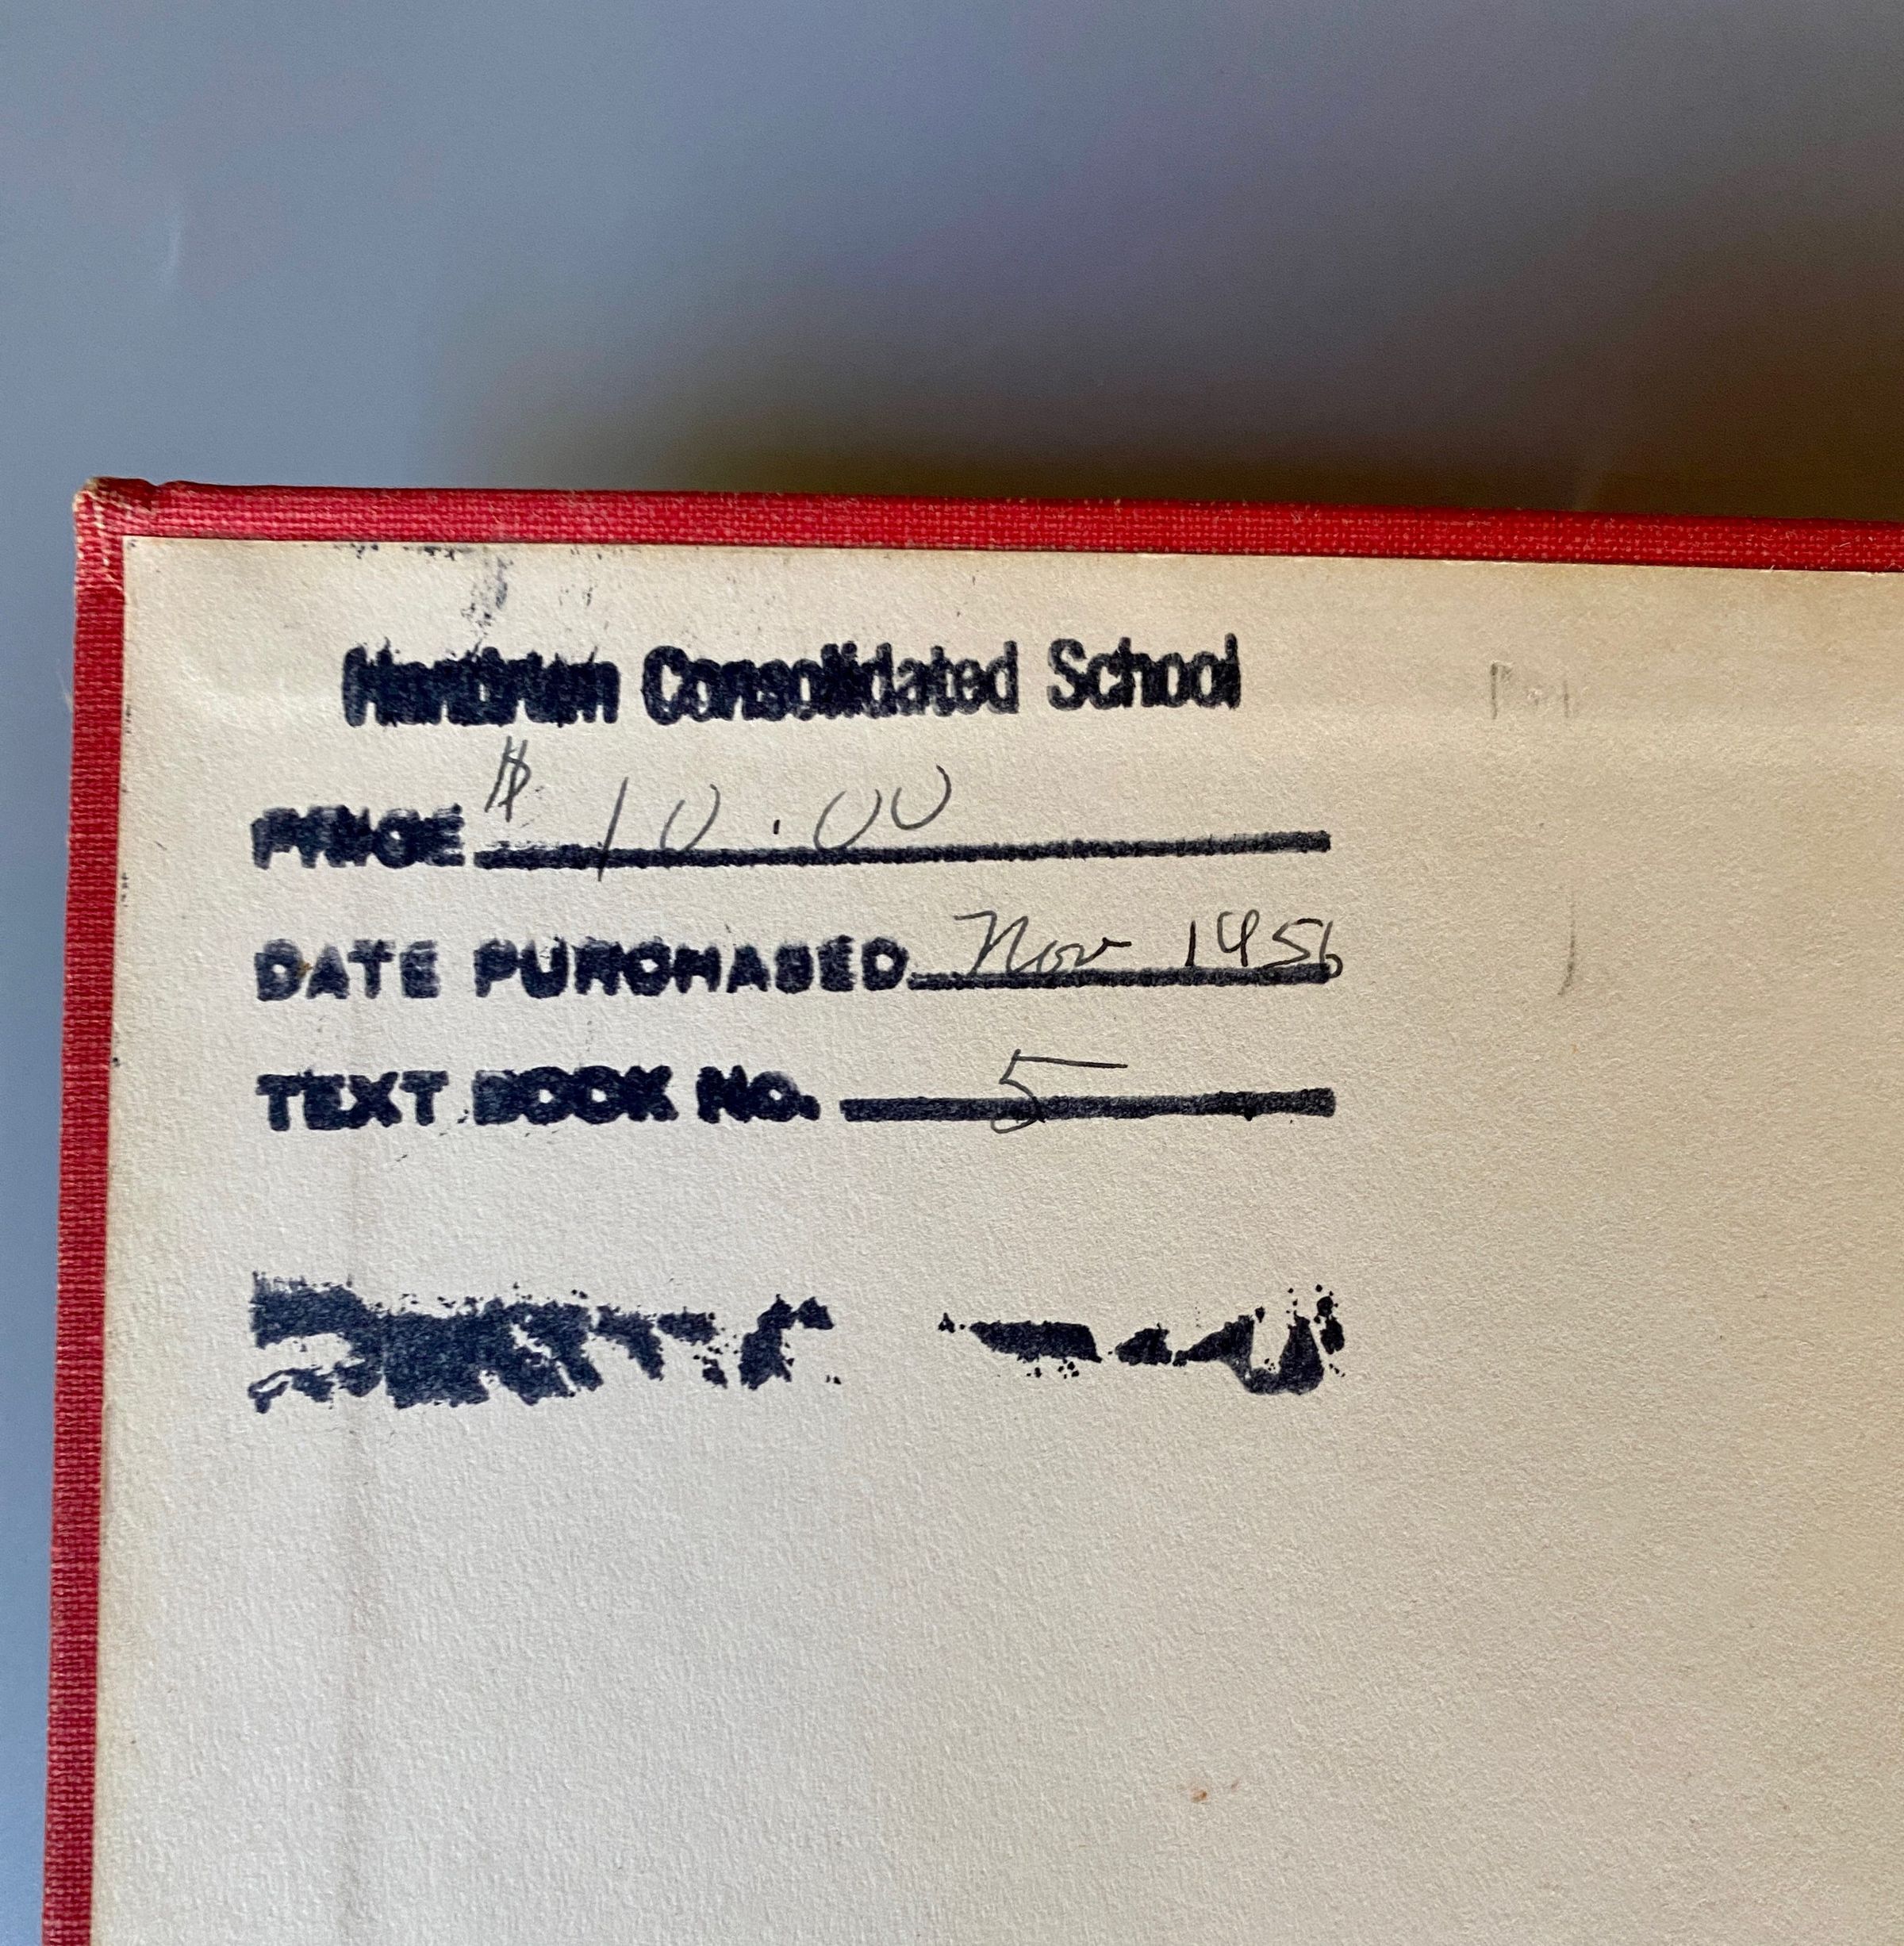 Hendrum Consolidated School
PRICE $ 10.00
DATE PURCHASED Nov 1956
TEXT BOOK NO. 5